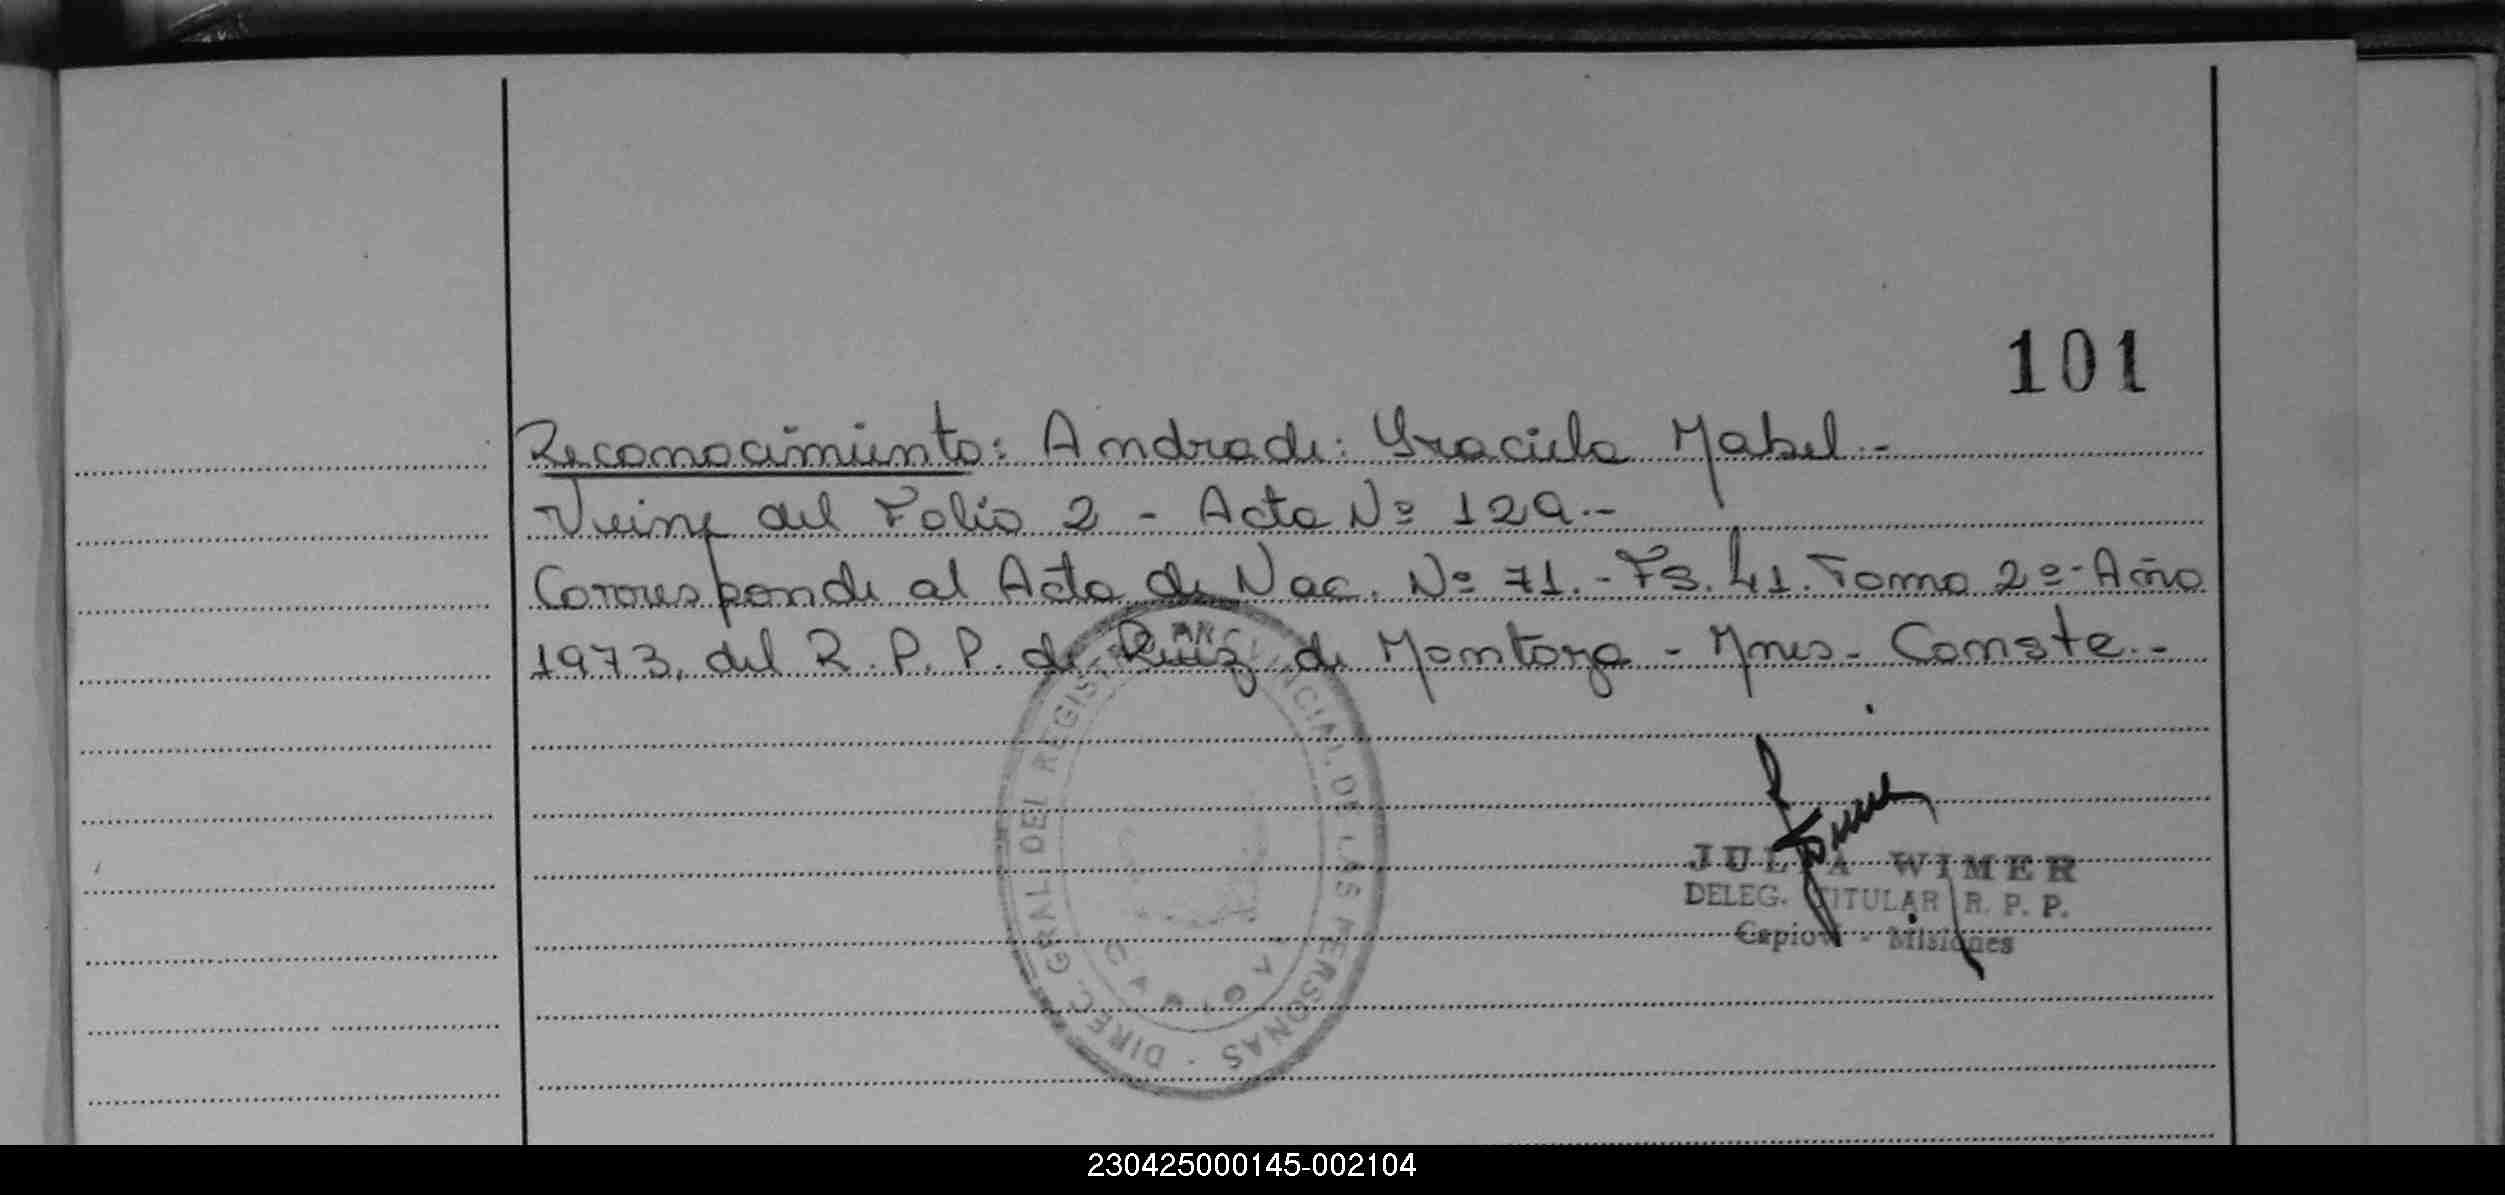 101
Reconocimiento: Andrade: Graciela Mabel.-
Viene del Folio 2 - Acta Nº 129.-
Corresponde al Acta de Nac. Nº 71.- Fs. 41. Tomo 2º- Año
1973, del R.P.P. de Ruiz de Montoya - Mnes- Conste.-
DIREC. GRAL. DEL REGIS DE LAS PERSONAS
JULIA WIMER
DELEG. TITULAR R. P. P.
Capioví - Misiones
230425000145-002104